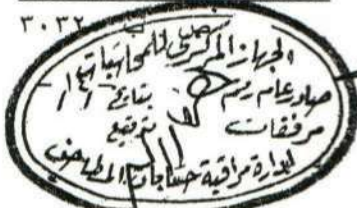 ٣٠٣٢
الجهاز المركزي للمحاسبات
صادر عام رقم بتاريخ / /
مرفقات بتوقيع
إدارة مراقبة حسابات المطاحن